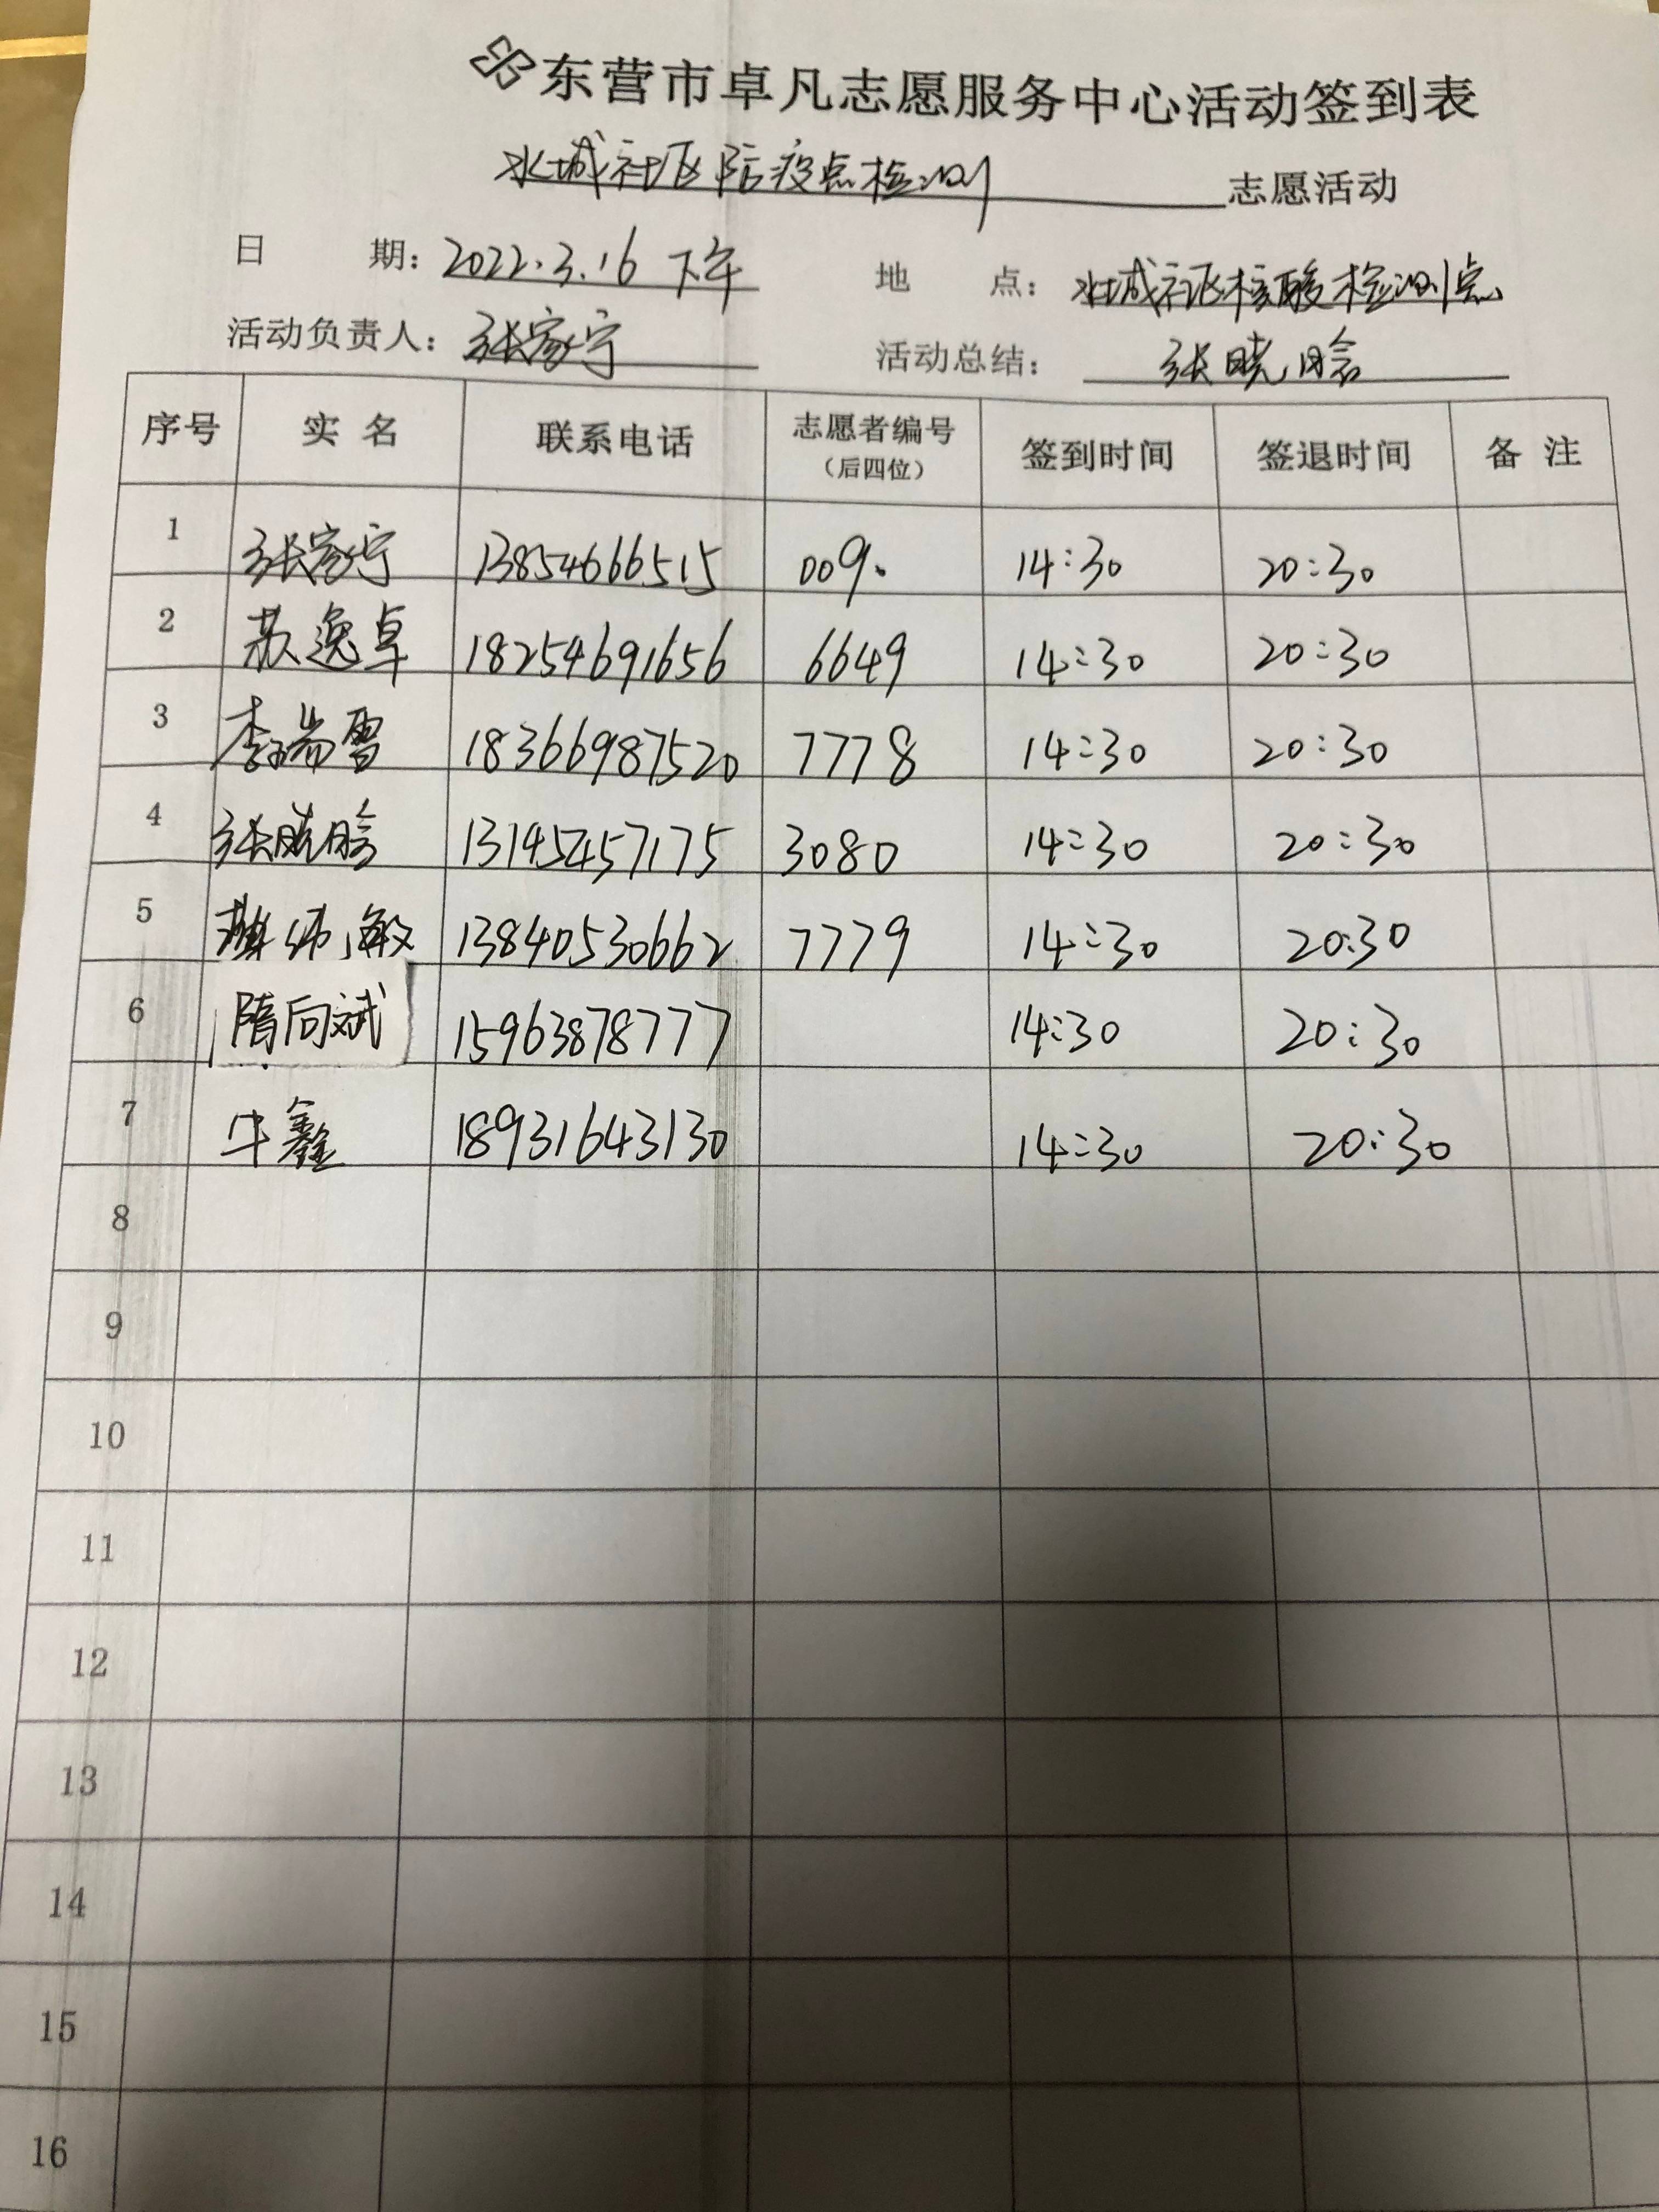 东营市卓凡志愿服务中心活动签到表
水城社区防疫点检测 志愿活动
日 期：2022.3.16 下午 地 点：水城社区核酸检测点
活动负责人：张家宁 活动总结：张晓晗
序号 实 名 联系电话 志愿者编号（后四位） 签到时间 签退时间 备 注
1 张家宁 13854666515 009. 14:30 20:30
2 苏逸卓 18254691656 6649 14:30 20:30
3 李瑞雪 18366987520 7778 14:30 20:30
4 张晓晗 13145457175 3080 14:30 20:30
5 敏 13840530662 7779 14:30 20:30
6 隋向斌 15963878777 14:30 20:30
7 牛鑫 18931643130 14:30 20:30
8
9
10
11
12
13
14
15
16